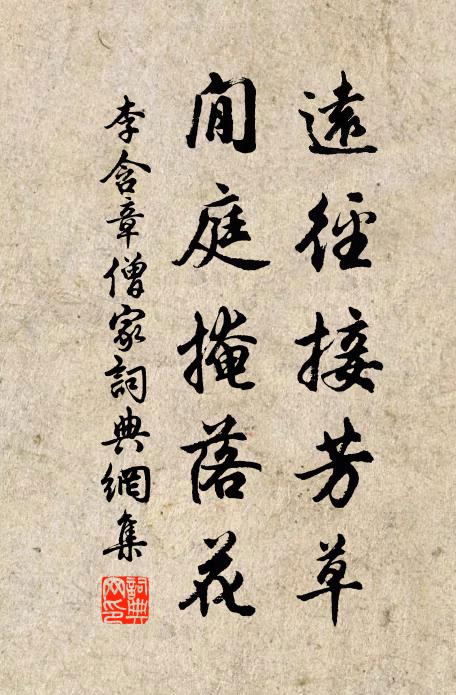 遠徑接芳草
閒庭掩落花
李含章僧家詞典網集
詞典网印